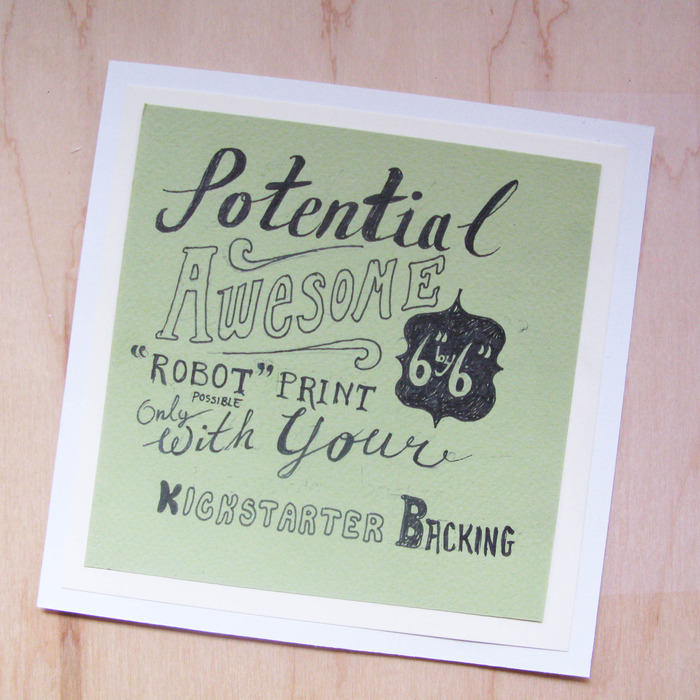 Potential
AWESOME
6" by 6"
"ROBOT" PRINT
Only POSSIBLE
with Your
KICKSTARTER BACKING